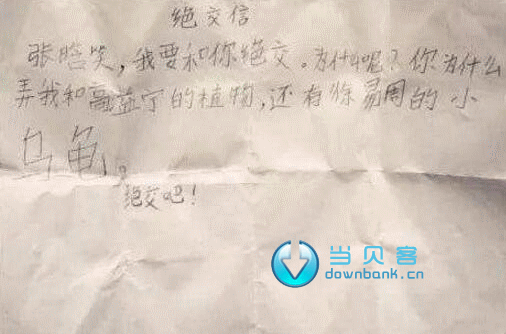 绝交信
张晗笑,我要和你绝交。为什么呢?你为什么
弄我和高益宁的植物,还有你易周的小
乌龟。
绝交吧!
当贝客
downbank.cn